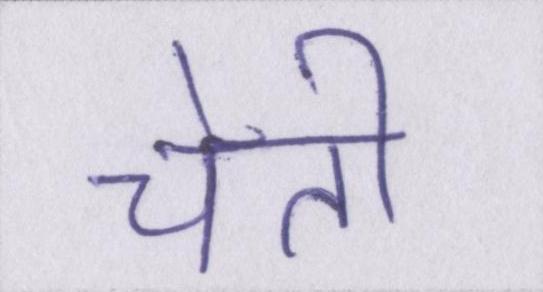 चेती